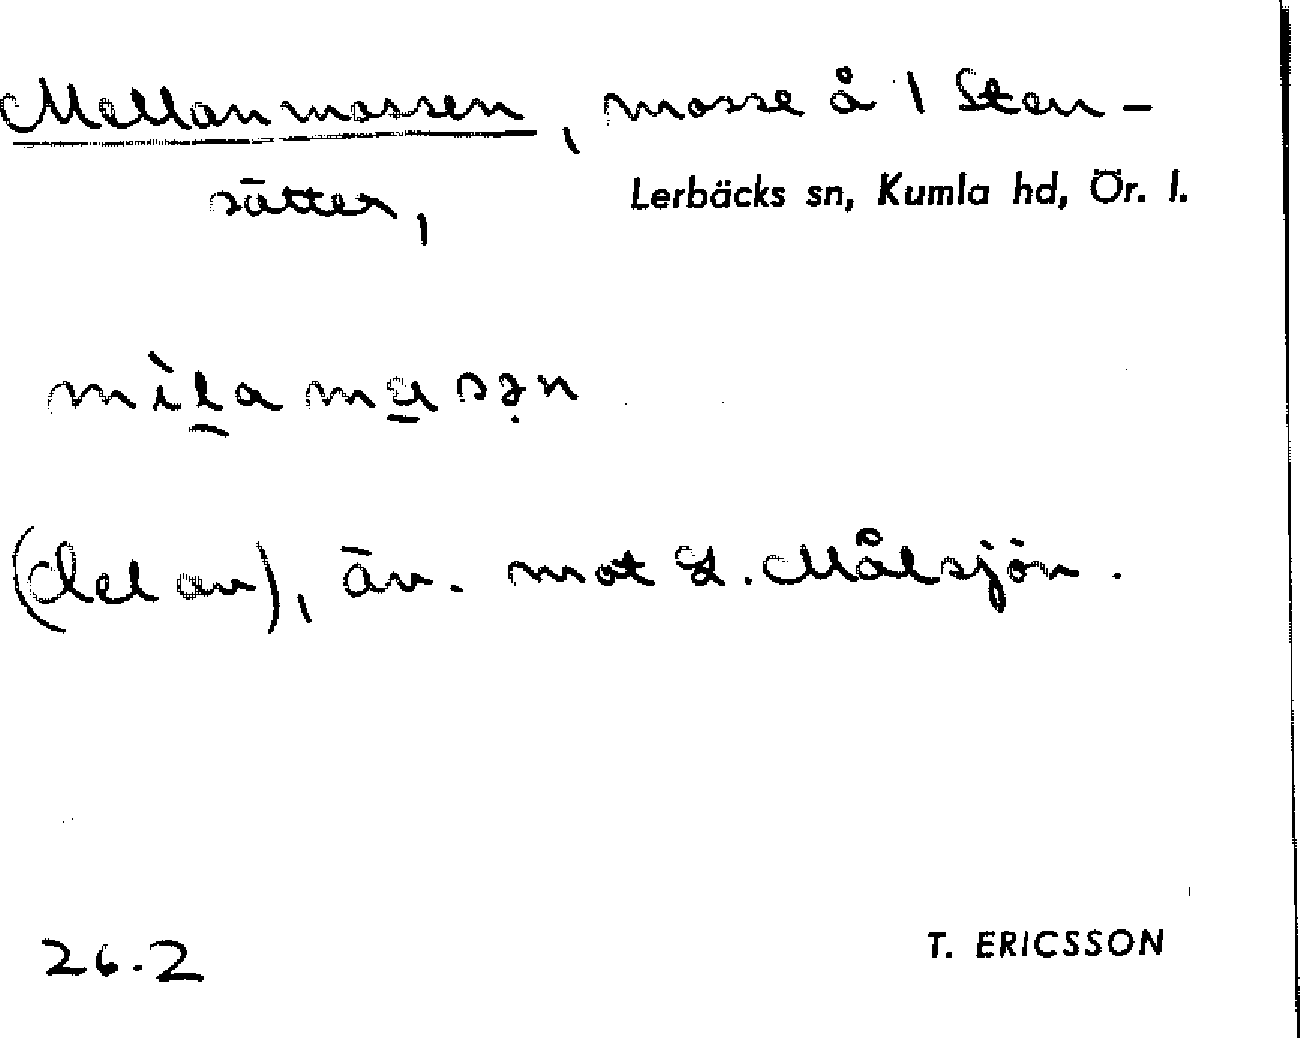 Mellanmossen, mosse å 1 Sten-
sätter, Lerbäcks sn, Kumla hd, Ör. l.
(del av), äv. mot L. Målsjön.
26.2 T. ERICSSON